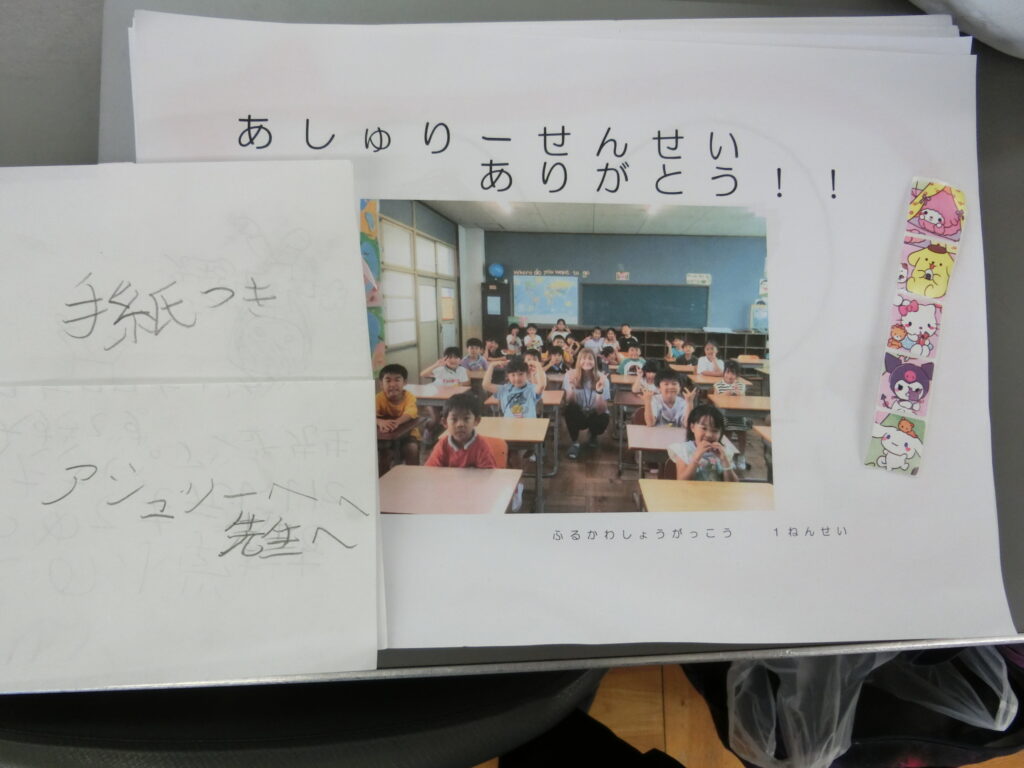 あしゅりーせんせい
ありがとう！！
Where do you want to go
ふるかわしょうがっこう　１ねんせい
手紙つき
アシュリーへへ
先生へ